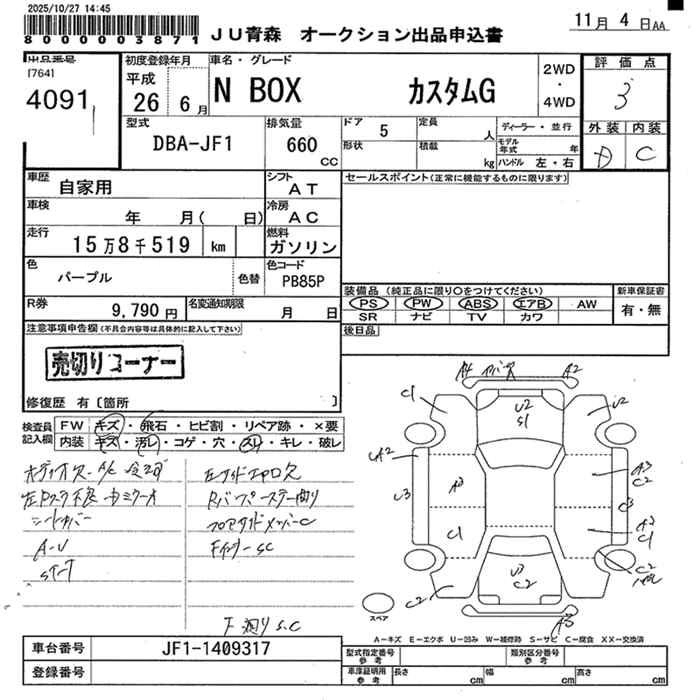 2025/10/27 14:45
8000003871
JU青森 オークション出品申込書
11月 4日AA
出品番号
[764]
4091
初度登録年月
平成
26 6月
車名・グレード
N BOX カスタムG
2WD
・
4WD
評価点
3
外装 内装
D C
型式
DBA-JF1
排気量
660
CC
ドア 5
形状
定員 人
積載 kg
ディーラー・並行
モデル年式 年
ハンドル 左・右
車歴
自家用
シフト
AT
車検
年 月( 日)
冷房
AC
走行
15万8千519 km
燃料
ガソリン
色
パープル
色替
色コード
PB85P
R券
9,790円
名変通知期限
月 日
セールスポイント(正常に機能するものに限ります)
装備品(純正品に限り〇をつけてください)
PS PW ABS エアB AW
SR ナビ TV カワ
新車保証書
有・無
後日品
注意事項申告欄(不具合内容等は具体的に記入して下さい)
売切りコーナー
修復歴 有〔箇所 〕
検査員
記入欄
FW キズ・飛石・ヒビ割・リペア跡・×要
内装 キズ・汚レ・コゲ・穴・スレ・キレ・破レ
シートカバー
A-U
Rバンパーステー曲り
下廻りS.C
A4 A2
C1 U2
U2
S1
A2
U3
A3
C1
A3
C2
C3
A3
C1
U3
C2
C2
C2
A3
スペア
A-キズ E-エクボ U-凹み W-補修跡 S-サビ C-腐食 XX-交換済
車台番号 JF1-1409317
登録番号
型式指定番号
参考
類別区分番号
参考
車庫証明用
参考
長さ cm 幅 cm 高さ cm